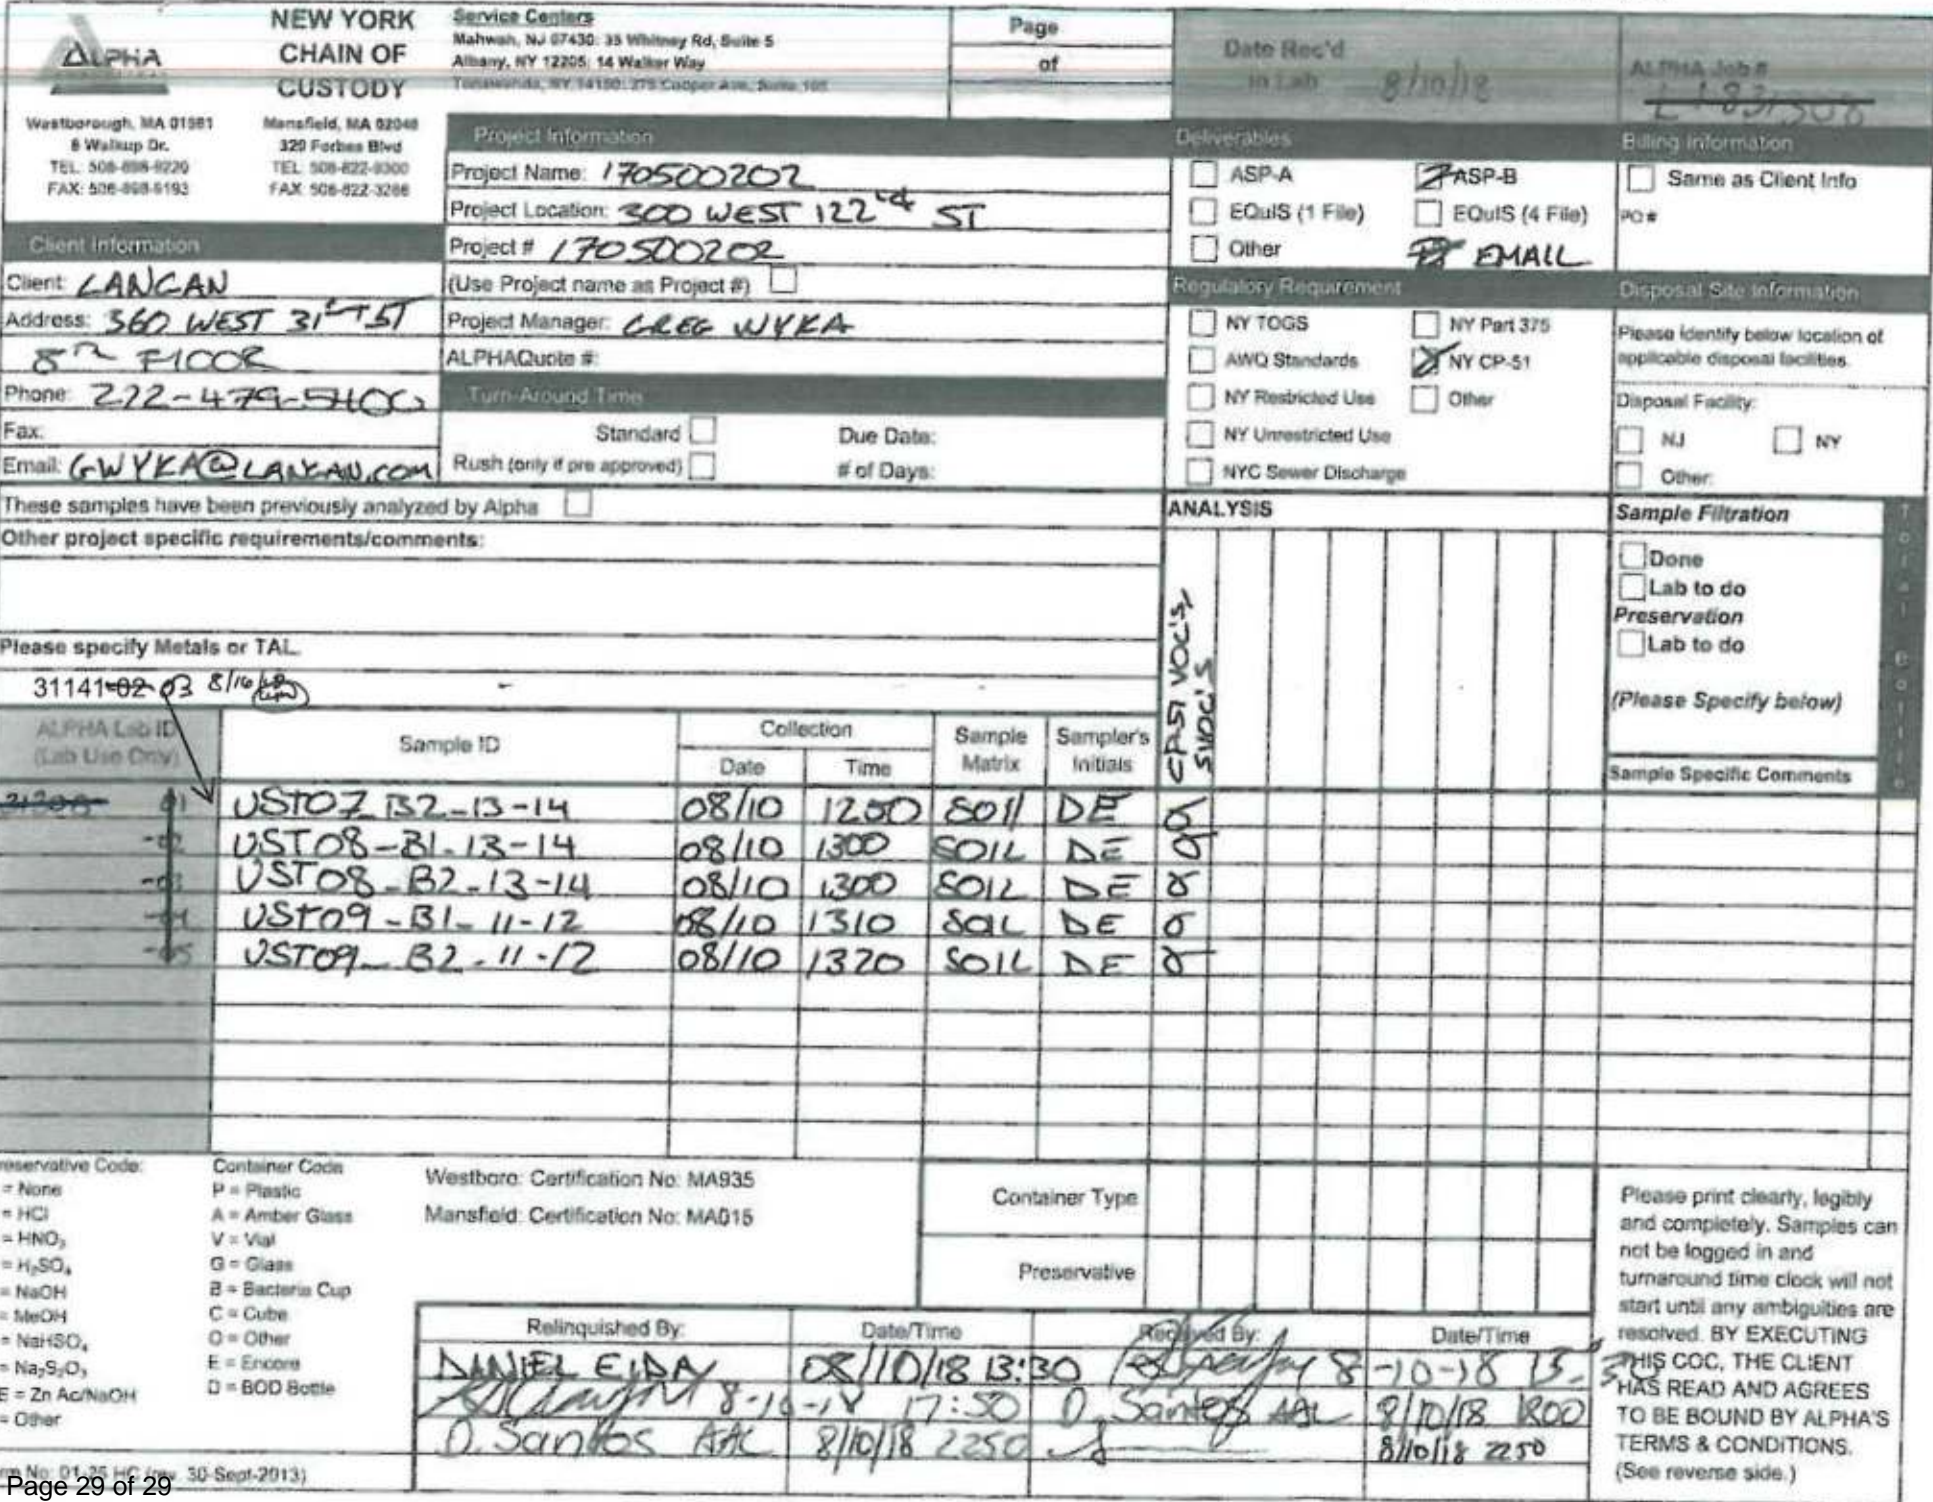 ALPHA
NEW YORK
CHAIN OF
CUSTODY
Westborough, MA 01581
8 Walkup Dr.
TEL: 508-898-9220
FAX: 508-898-9193
Mansfield, MA 02048
320 Forbes Blvd
TEL: 508-822-9300
FAX: 508-822-3288
Service Centers
Mahwah, NJ 07430: 35 Whitney Rd, Suite 5
Albany, NY 12205: 14 Walker Way
Tonawanda, NY 14150: 275 Cooper Ave, Suite 105
Page
of
Date Rec'd
in Lab 8/10/18
ALPHA Job #
L1831308
Client Information
Client: LANGAN
Address: 360 WEST 31ST ST
8TH FLOOR
Phone: 212-479-5400
Fax:
Email: GWYKA@LANGAN.COM
Project Information
Project Name: 170500202
Project Location: 300 WEST 122nd ST
Project # 170500202
(Use Project name as Project #)
Project Manager: GREG WYKA
ALPHAQuote #:
Turn-Around Time
Standard Due Date:
Rush (only if pre approved) # of Days:
Deliverables
ASP-A ASP-B
EQuIS (1 File) EQuIS (4 File)
Other EMAIL
Regulatory Requirement
NY TOGS NY Part 375
AWQ Standards NY CP-51
NY Restricted Use Other
NY Unrestricted Use
NYC Sewer Discharge
Billing Information
Same as Client Info
PO #
Disposal Site Information
Please identify below location of
applicable disposal facilities.
Disposal Facility:
NJ NY
Other:
These samples have been previously analyzed by Alpha
Other project specific requirements/comments:
Please specify Metals or TAL.
31141-02 03 8/16/18
ANALYSIS
CP-51 VOC'S,
SVOC'S
Sample Filtration
Done
Lab to do
Preservation
Lab to do
(Please Specify below)
Total Bottle
ALPHA Lab ID
(Lab Use Only)
Sample ID
Collection
Date Time
Sample
Matrix
Sampler's
Initials
Sample Specific Comments
31308 01 UST07_B2-13-14 08/10 1250 SOIL DE
-02 UST08-B1-13-14 08/10 1300 SOIL DE
-03 UST08-B2-13-14 08/10 1300 SOIL DE
-04 UST09-B1-11-12 08/10 1310 SOIL DE
-05 UST09_B2-11-12 08/10 1320 SOIL DE
reservative Code:
= None
= HCl
= HNO3
= H2SO4
= NaOH
= MeOH
= NaHSO4
= Na2S2O3
E = Zn Ac/NaOH
= Other
Container Code
P = Plastic
A = Amber Glass
V = Vial
G = Glass
B = Bacteria Cup
C = Cube
O = Other
E = Encore
D = BOD Bottle
Westboro: Certification No: MA935
Mansfield: Certification No: MA015
Container Type
Preservative
Relinquished By: Date/Time Received By: Date/Time
DANIEL EIDA 08/10/18 13:30 8-10-18 13:30
8-10-18 17:50 D. Santos AAL 8/10/18 1800
D. Santos AAL 8/10/18 2250 8/10/18 2250
Please print clearly, legibly
and completely. Samples can
not be logged in and
turnaround time clock will not
start until any ambiguities are
resolved. BY EXECUTING
THIS COC, THE CLIENT
HAS READ AND AGREES
TO BE BOUND BY ALPHA'S
TERMS & CONDITIONS.
(See reverse side.)
rm No: 01-25 HC (rev. 30-Sept-2013)
Page 29 of 29